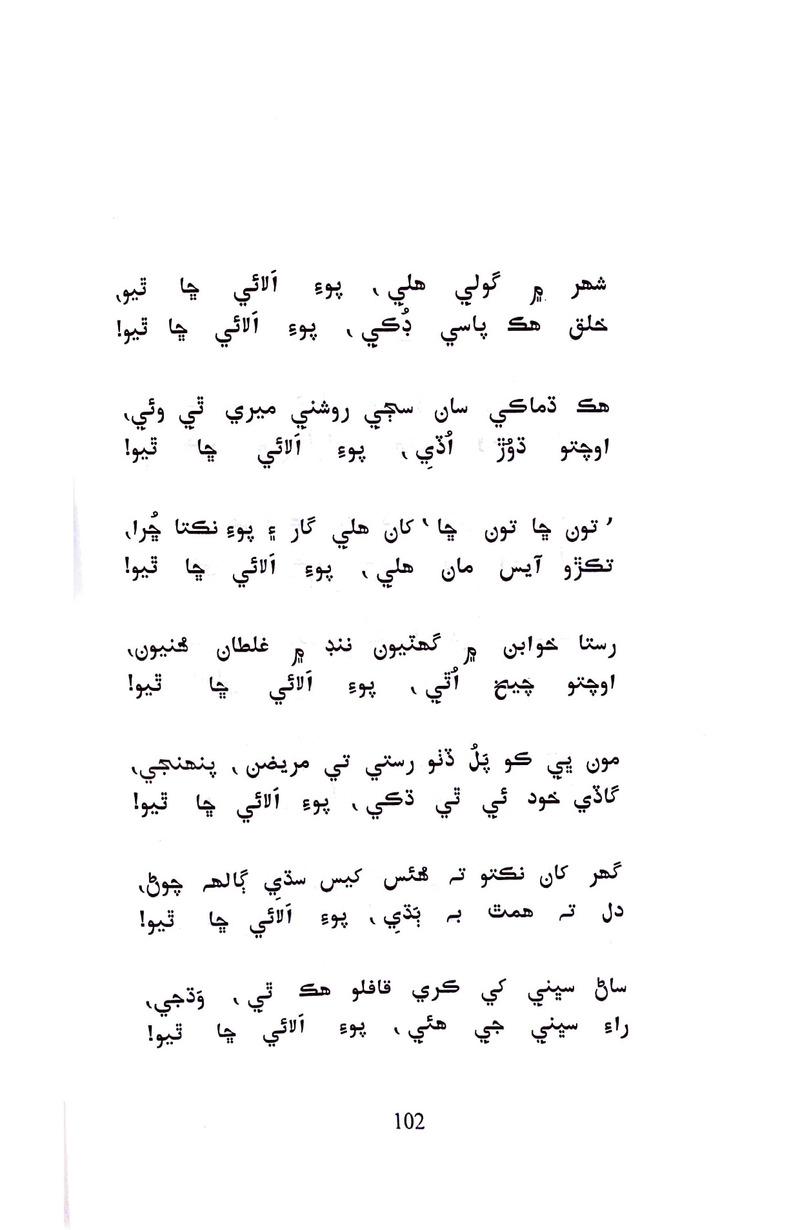 شهر ۾ گولي هلي، پوءِ اَلائي ڇا ٿيو،
خلق هڪ پاسي ڊُڪي، پوءِ اَلائي ڇا ٿيو!
هڪ ڌماڪي سان سڄي روشني ميري ٿي وئي،
اوچتو ڌوُڙ اُڏي، پوءِ اَلائي ڇا ٿيو!
’تون ڇا تون ڇا‘ کان هلي گار ۽ پوءِ نڪتا ڇُرا،
تڪڙو آيس مان هلي، پوءِ اَلائي ڇا ٿيو!
رستا خوابن ۾ گهٽيون ننڊ ۾ غلطان هُنيون،
اوچتو چيخ اُٿي، پوءِ اَلائي ڇا ٿيو!
مون ڀي ڪو پَلُ ڏٺو رستي تي مريضن، پنهنجي،
گاڏي خود ئي ٿي ڌڪي، پوءِ اَلائي ڇا ٿيو!
گهر کان نڪتو تہ هُئس کيس سڌي ڳالهہ چوڻ،
دل تہ همٿ بہ ٻَڌي، پوءِ اَلائي ڇا ٿيو!
ساڻ سڀني کي ڪري قافلو هڪ ٿي، وَڌجي،
راءِ سڀني جي هئي، پوءِ اَلائي ڇا ٿيو!
102